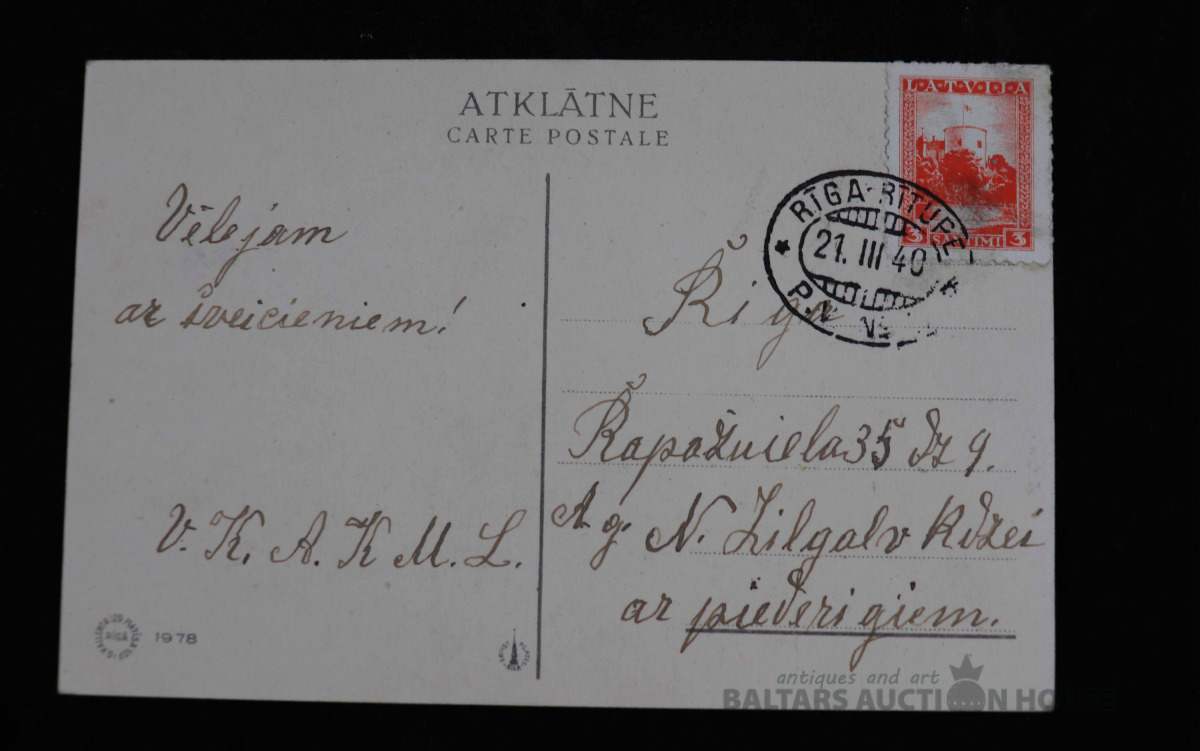 ATKLĀTNE
CARTE POSTALE
LATVIJA
3 SANTIMI 3
RĪGA-RĪTUPE
21. III 40
Vēlejam
ar šveicieniem!
V. K. A. K M. L.
Rīga
35 dz 9.
A. g. N. Zilgalv kdzei
ar piederigiem.
RĪGA
1978
antiques and art
BALTARS AUCTION HOUSE